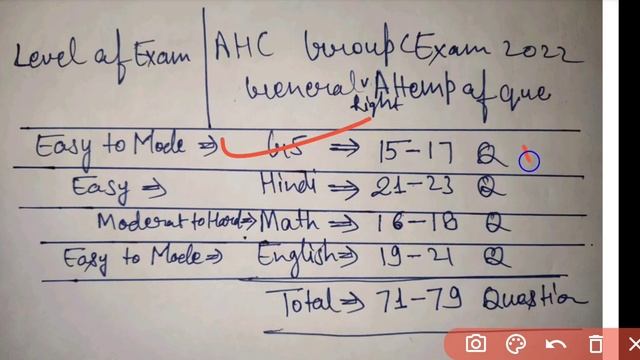 Level of Exam | AHC Group C Exam 2022
General Right Attemp of que
Easy to Mode ⇒ GS ⇒ 15-17 Q
Easy ⇒ Hindi ⇒ 21-23 Q
Moderat to Hard ⇒ Math ⇒ 16-18 Q
Easy to Mode ⇒ English ⇒ 19-21 Q
Total ⇒ 71-79 Question